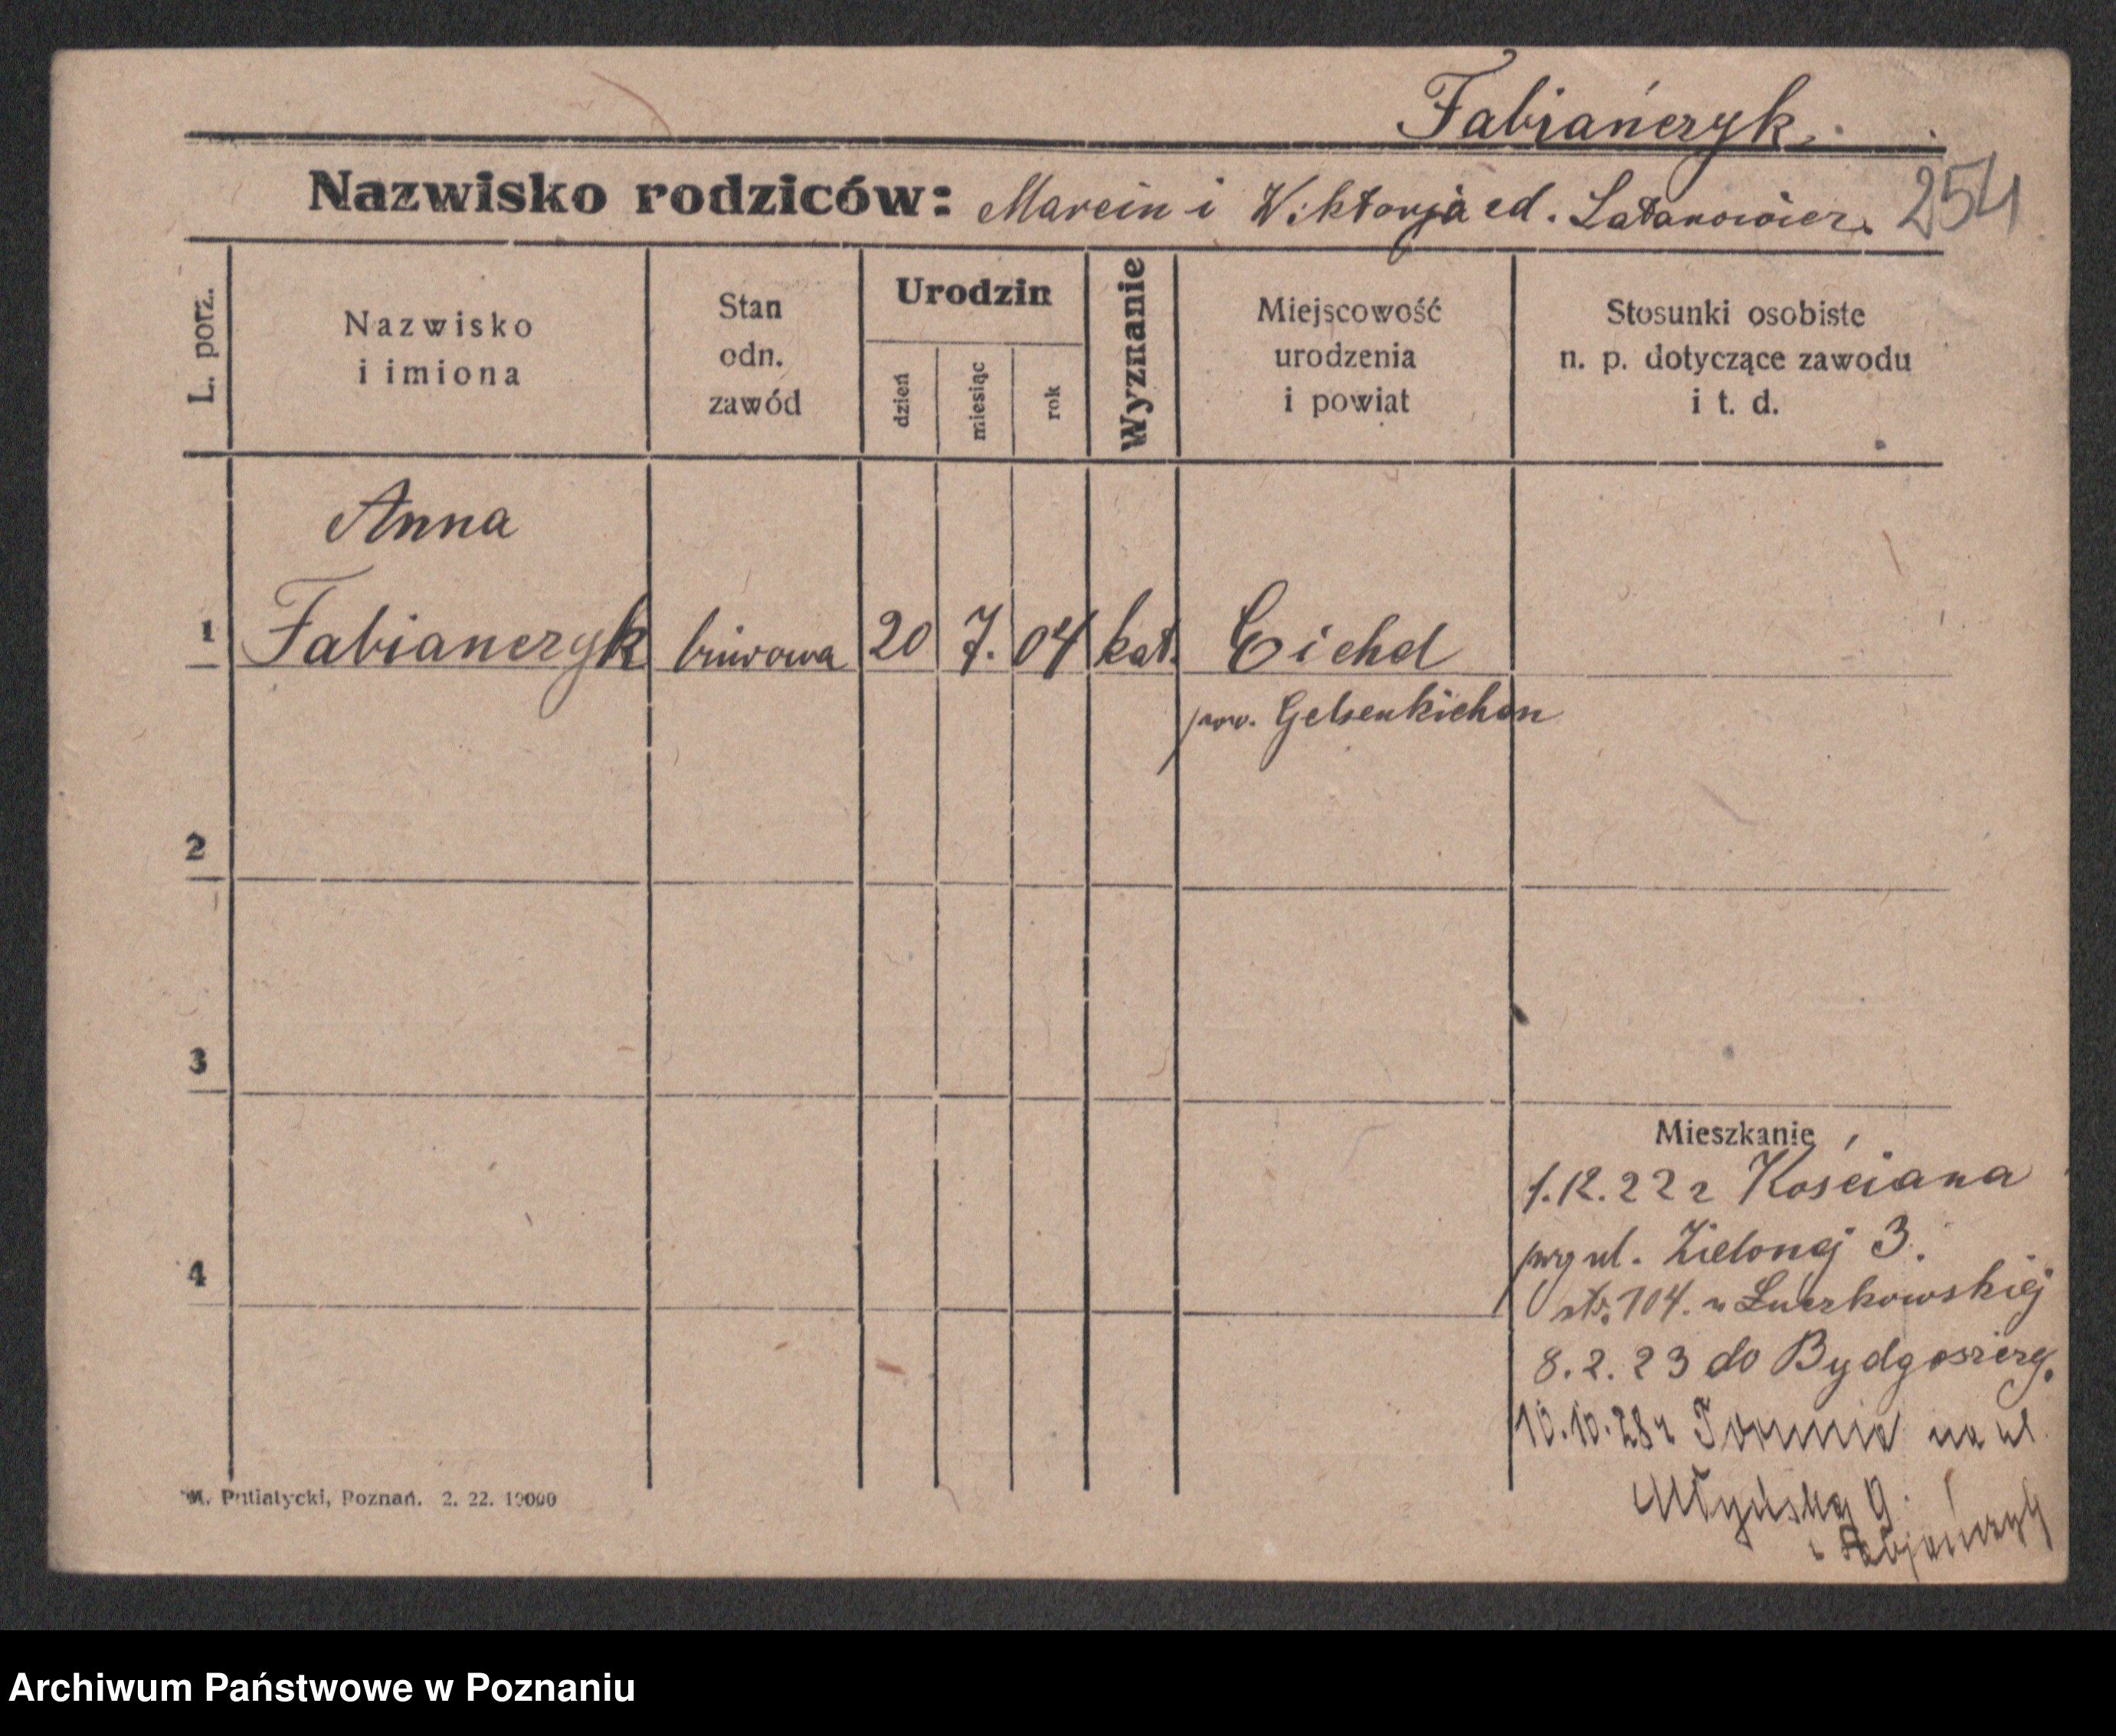 Fabiańczyk.
Nazwisko rodziców: Marcin i Wiktorja ed. Latanowicz. 254
L. porz.
Nazwisko i imiona
Stan odn. zawód
Urodzin
dzień miesiąc rok
Wyznanie
Miejscowość urodzenia i powiat
Stosunki osobiste n. p. dotyczące zawodu i t. d.
Anna
1 Fabianczyk biurowa 20 7. 04 kat. Eichel
pow. Gelsenkichen
2
3
Mieszkanie
1.12.22 z Kościana
przy ul. Zielonej 3.
4
str. 104. u Luczkowskiej
8.2.23 do Bydgoszczy.
10.10.28 z Torunia na ul.
Młyńską 9.
u Fabjańczyk
M. Putiatycki, Poznań. 2. 22. 10000
Archiwum Państwowe w Poznaniu